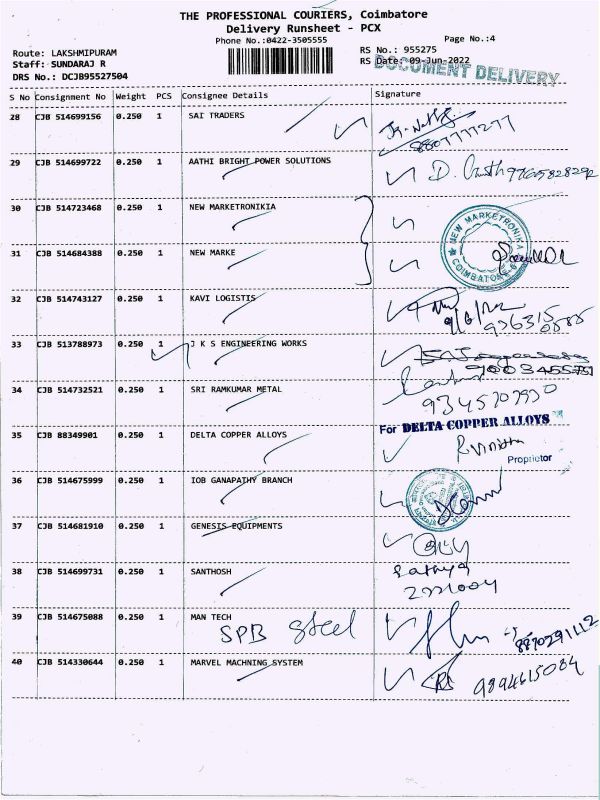 THE PROFESSIONAL COURIERS, Coimbatore
Delivery Runsheet - PCX
Phone No.:0422-3505555
Page No.:4
Route: LAKSHMIPURAM
RS No.: 955275
Staff: SUNDARAJ R
RS Date: 09-Jun-2022
DOCUMENT DELIVERY
DRS No.: DCJB95527504
S No Consignment No Weight PCS Consignee Details Signature
28 CJB 514699156 0.250 1 SAI TRADERS
8807777277
29 CJB 514699722 0.250 1 AATHI BRIGHT POWER SOLUTIONS
30 CJB 514723468 0.250 1 NEW MARKETRONIKIA
NEW MARKETRONIKA
COIMBATORE-6
31 CJB 514684388 0.250 1 NEW MARKE
32 CJB 514743127 0.250 1 KAVI LOGISTIS
33 CJB 513788973 0.250 1 J K S ENGINEERING WORKS
9003455751
34 CJB 514732521 0.250 1 SRI RAMKUMAR METAL
35 CJB 88349901 0.250 1 DELTA COPPER ALLOYS
For DELTA COPPER ALLOYS
Proprietor
36 CJB 514675999 0.250 1 IOB GANAPATHY BRANCH
37 CJB 514681910 0.250 1 GENESIS EQUIPMENTS
38 CJB 514699731 0.250 1 SANTHOSH
39 CJB 514675088 0.250 1 MAN TECH
SPB Steel
8870291112
40 CJB 514330644 0.250 1 MARVEL MACHNING SYSTEM
9894615084